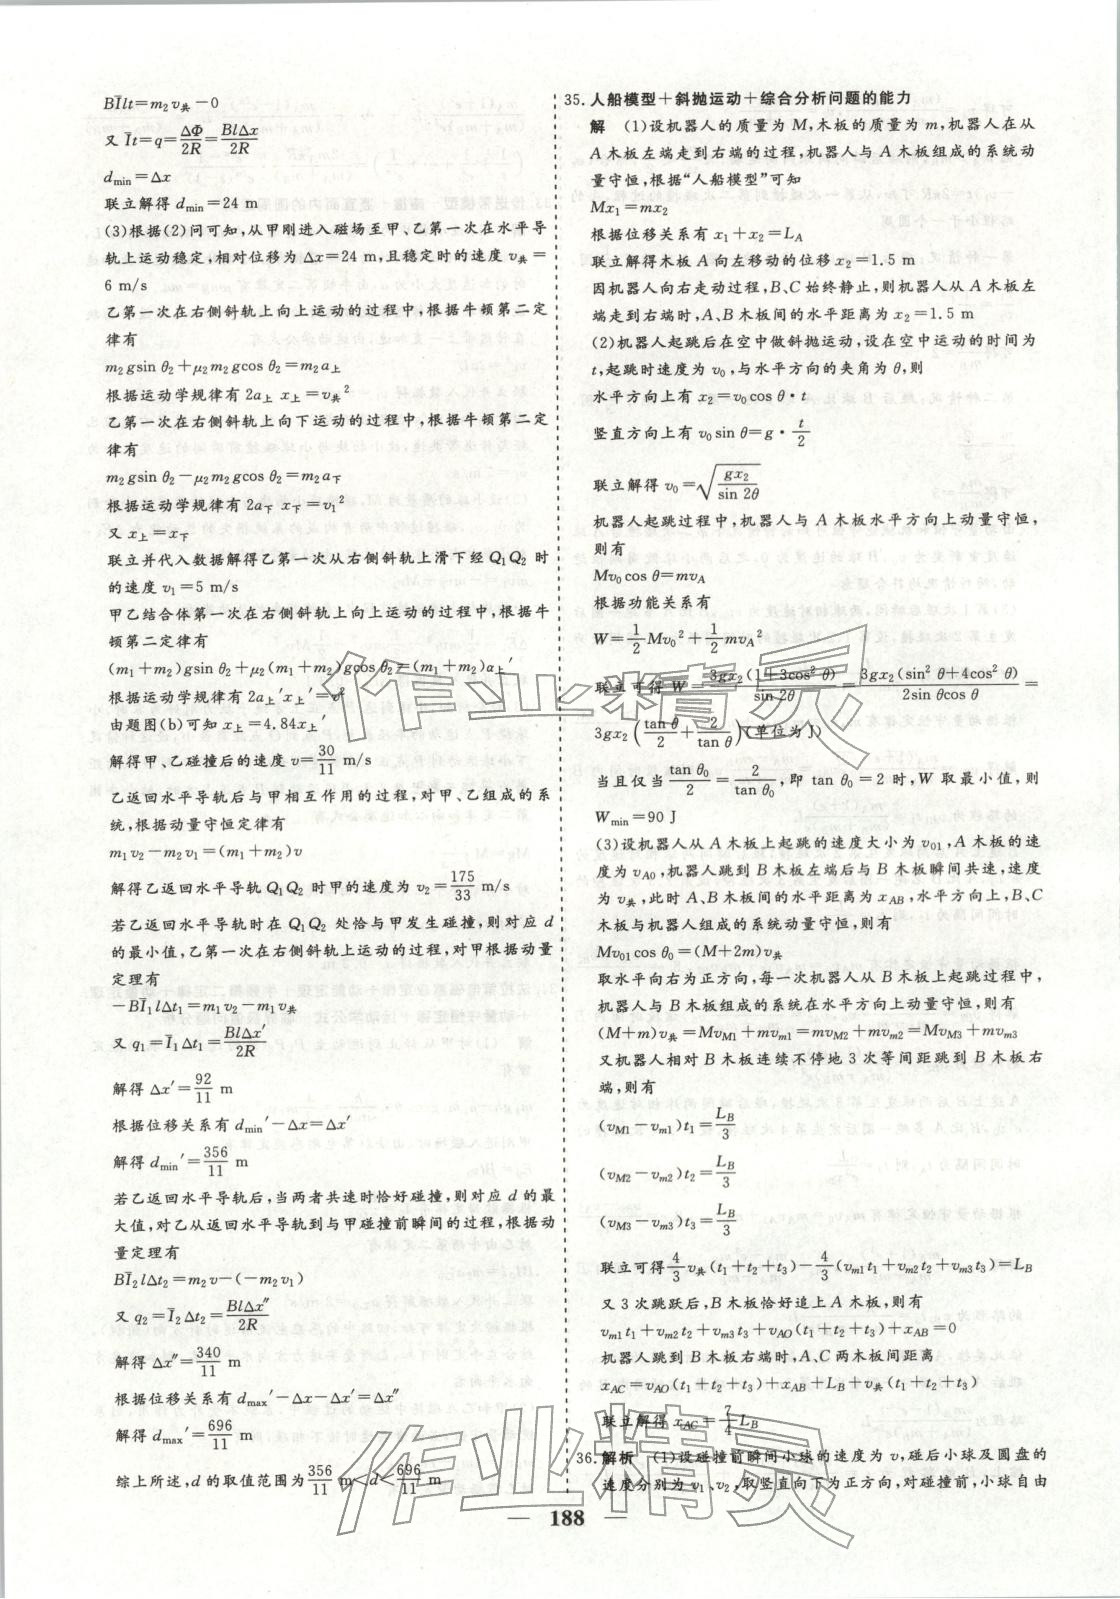 BĪlt=m₂v共-0
又 Īt=q=ΔΦ̄/2R=BlΔx/2R
dmin=Δx
联立解得 dmin=24 m
(3)根据(2)问可知,从甲刚进入磁场至甲、乙第一次在水平导
轨上运动稳定,相对位移为 Δx=24 m,且稳定时的速度 v共=
6 m/s
乙第一次在右侧斜轨上向上运动的过程中,根据牛顿第二定
律有
m₂gsin θ₂+μ₂m₂gcos θ₂=m₂a上
根据运动学规律有 2a上x上=v共²
乙第一次在右侧斜轨上向下运动的过程中,根据牛顿第二定
律有
m₂gsin θ₂-μ₂m₂gcos θ₂=m₂a下
根据运动学规律有 2a下x下=v₁²
又 x上=x下
联立并代入数据解得乙第一次从右侧斜轨上滑下经 Q₁Q₂ 时
的速度 v₁=5 m/s
甲乙结合体第一次在右侧斜轨上向上运动的过程中,根据牛
顿第二定律有
(m₁+m₂)gsin θ₂+μ₂(m₁+m₂)gcos θ₂=(m₁+m₂)a上′
根据运动学规律有 2a上′x上′=v²
由题图(b)可知 x上=4.84x上′
解得甲、乙碰撞后的速度 v=30/11 m/s
乙返回水平导轨后与甲相互作用的过程,对甲、乙组成的系
统,根据动量守恒定律有
m₁v₂-m₂v₁=(m₁+m₂)v
解得乙返回水平导轨 Q₁Q₂ 时甲的速度为 v₂=175/33 m/s
若乙返回水平导轨时在 Q₁Q₂ 处恰与甲发生碰撞,则对应 d
的最小值,乙第一次在右侧斜轨上运动的过程,对甲根据动量
定理有
-BĪ₁lΔt₁=m₁v₂-m₁v共
又 q₁=Ī₁Δt₁=BlΔx′/2R
解得 Δx′=92/11 m
根据位移关系有 dmin′-Δx=Δx′
解得 dmin′=356/11 m
若乙返回水平导轨后,当两者共速时恰好碰撞,则对应 d 的最
大值,对乙从返回水平导轨到与甲碰撞前瞬间的过程,根据动
量定理有
BĪ₂lΔt₂=m₂v-(-m₂v₁)
又 q₂=Ī₂Δt₂=BlΔx″/2R
解得 Δx″=340/11 m
根据位移关系有 dmax′-Δx-Δx′=Δx″
解得 dmax′=696/11 m
综上所述,d 的取值范围为 356/11 m<d<696/11 m
35. 人船模型+斜抛运动+综合分析问题的能力
解 (1)设机器人的质量为 M,木板的质量为 m,机器人在从
A 木板左端走到右端的过程,机器人与 A 木板组成的系统动
量守恒,根据“人船模型”可知
Mx₁=mx₂
根据位移关系有 x₁+x₂=LA
联立解得木板 A 向左移动的位移 x₂=1.5 m
因机器人向右走动过程,B、C 始终静止,则机器人从 A 木板左
端走到右端时,A、B 木板间的水平距离为 x₂=1.5 m
(2)机器人起跳后在空中做斜抛运动,设在空中运动的时间为
t,起跳时速度为 v₀,与水平方向的夹角为 θ,则
水平方向上有 x₂=v₀cos θ·t
竖直方向上有 v₀sin θ=g·t/2
联立解得 v₀=√(gx₂/sin 2θ)
机器人起跳过程中,机器人与 A 木板水平方向上动量守恒,
则有
Mv₀cos θ=mvA
根据功能关系有
W=1/2Mv₀²+1/2mvA²
联立可得 W=3gx₂(1+3cos² θ)/sin 2θ=3gx₂(sin² θ+4cos² θ)/2sin θcos θ=
3gx₂(tan θ/2+2/tan θ)(单位为 J)
当且仅当 tan θ₀/2=2/tan θ₀,即 tan θ₀=2 时,W 取最小值,则
Wmin=90 J
(3)设机器人从 A 木板上起跳的速度大小为 v₀₁,A 木板的速
度为 vA0,机器人跳到 B 木板左端后与 B 木板瞬间共速,速度
为 v共,此时 A、B 木板间的水平距离为 xAB,水平方向上,B、C
木板与机器人组成的系统动量守恒,则有
Mv₀₁cos θ₀=(M+2m)v共
取水平向右为正方向,每一次机器人从 B 木板上起跳过程中,
机器人与 B 木板组成的系统在水平方向上动量守恒,则有
(M+m)v共=MvM1+mvm1=mvM2+mvm2=MvM3+mvm3
又机器人相对 B 木板连续不停地 3 次等间距跳到 B 木板右
端,则有
(vM1-vm1)t₁=LB/3
(vM2-vm2)t₂=LB/3
(vM3-vm3)t₃=LB/3
联立可得 4/3v共(t₁+t₂+t₃)-4/3(vm1t₁+vm2t₂+vm3t₃)=LB
又 3 次跳跃后,B 木板恰好追上 A 木板,则有
vm1t₁+vm2t₂+vm3t₃+vA0(t₁+t₂+t₃)+xAB=0
机器人跳到 B 木板右端时,A、C 两木板间距离
xAC=vA0(t₁+t₂+t₃)+xAB+LB+v共(t₁+t₂+t₃)
联立解得 xAC=7/4LB
36. 解析 (1)设碰撞前瞬间小球的速度为 v,碰后小球及圆盘的
速度分别为 v₁、v₂,取竖直向下为正方向,对碰撞前,小球自由
188
作业精灵
作业精灵